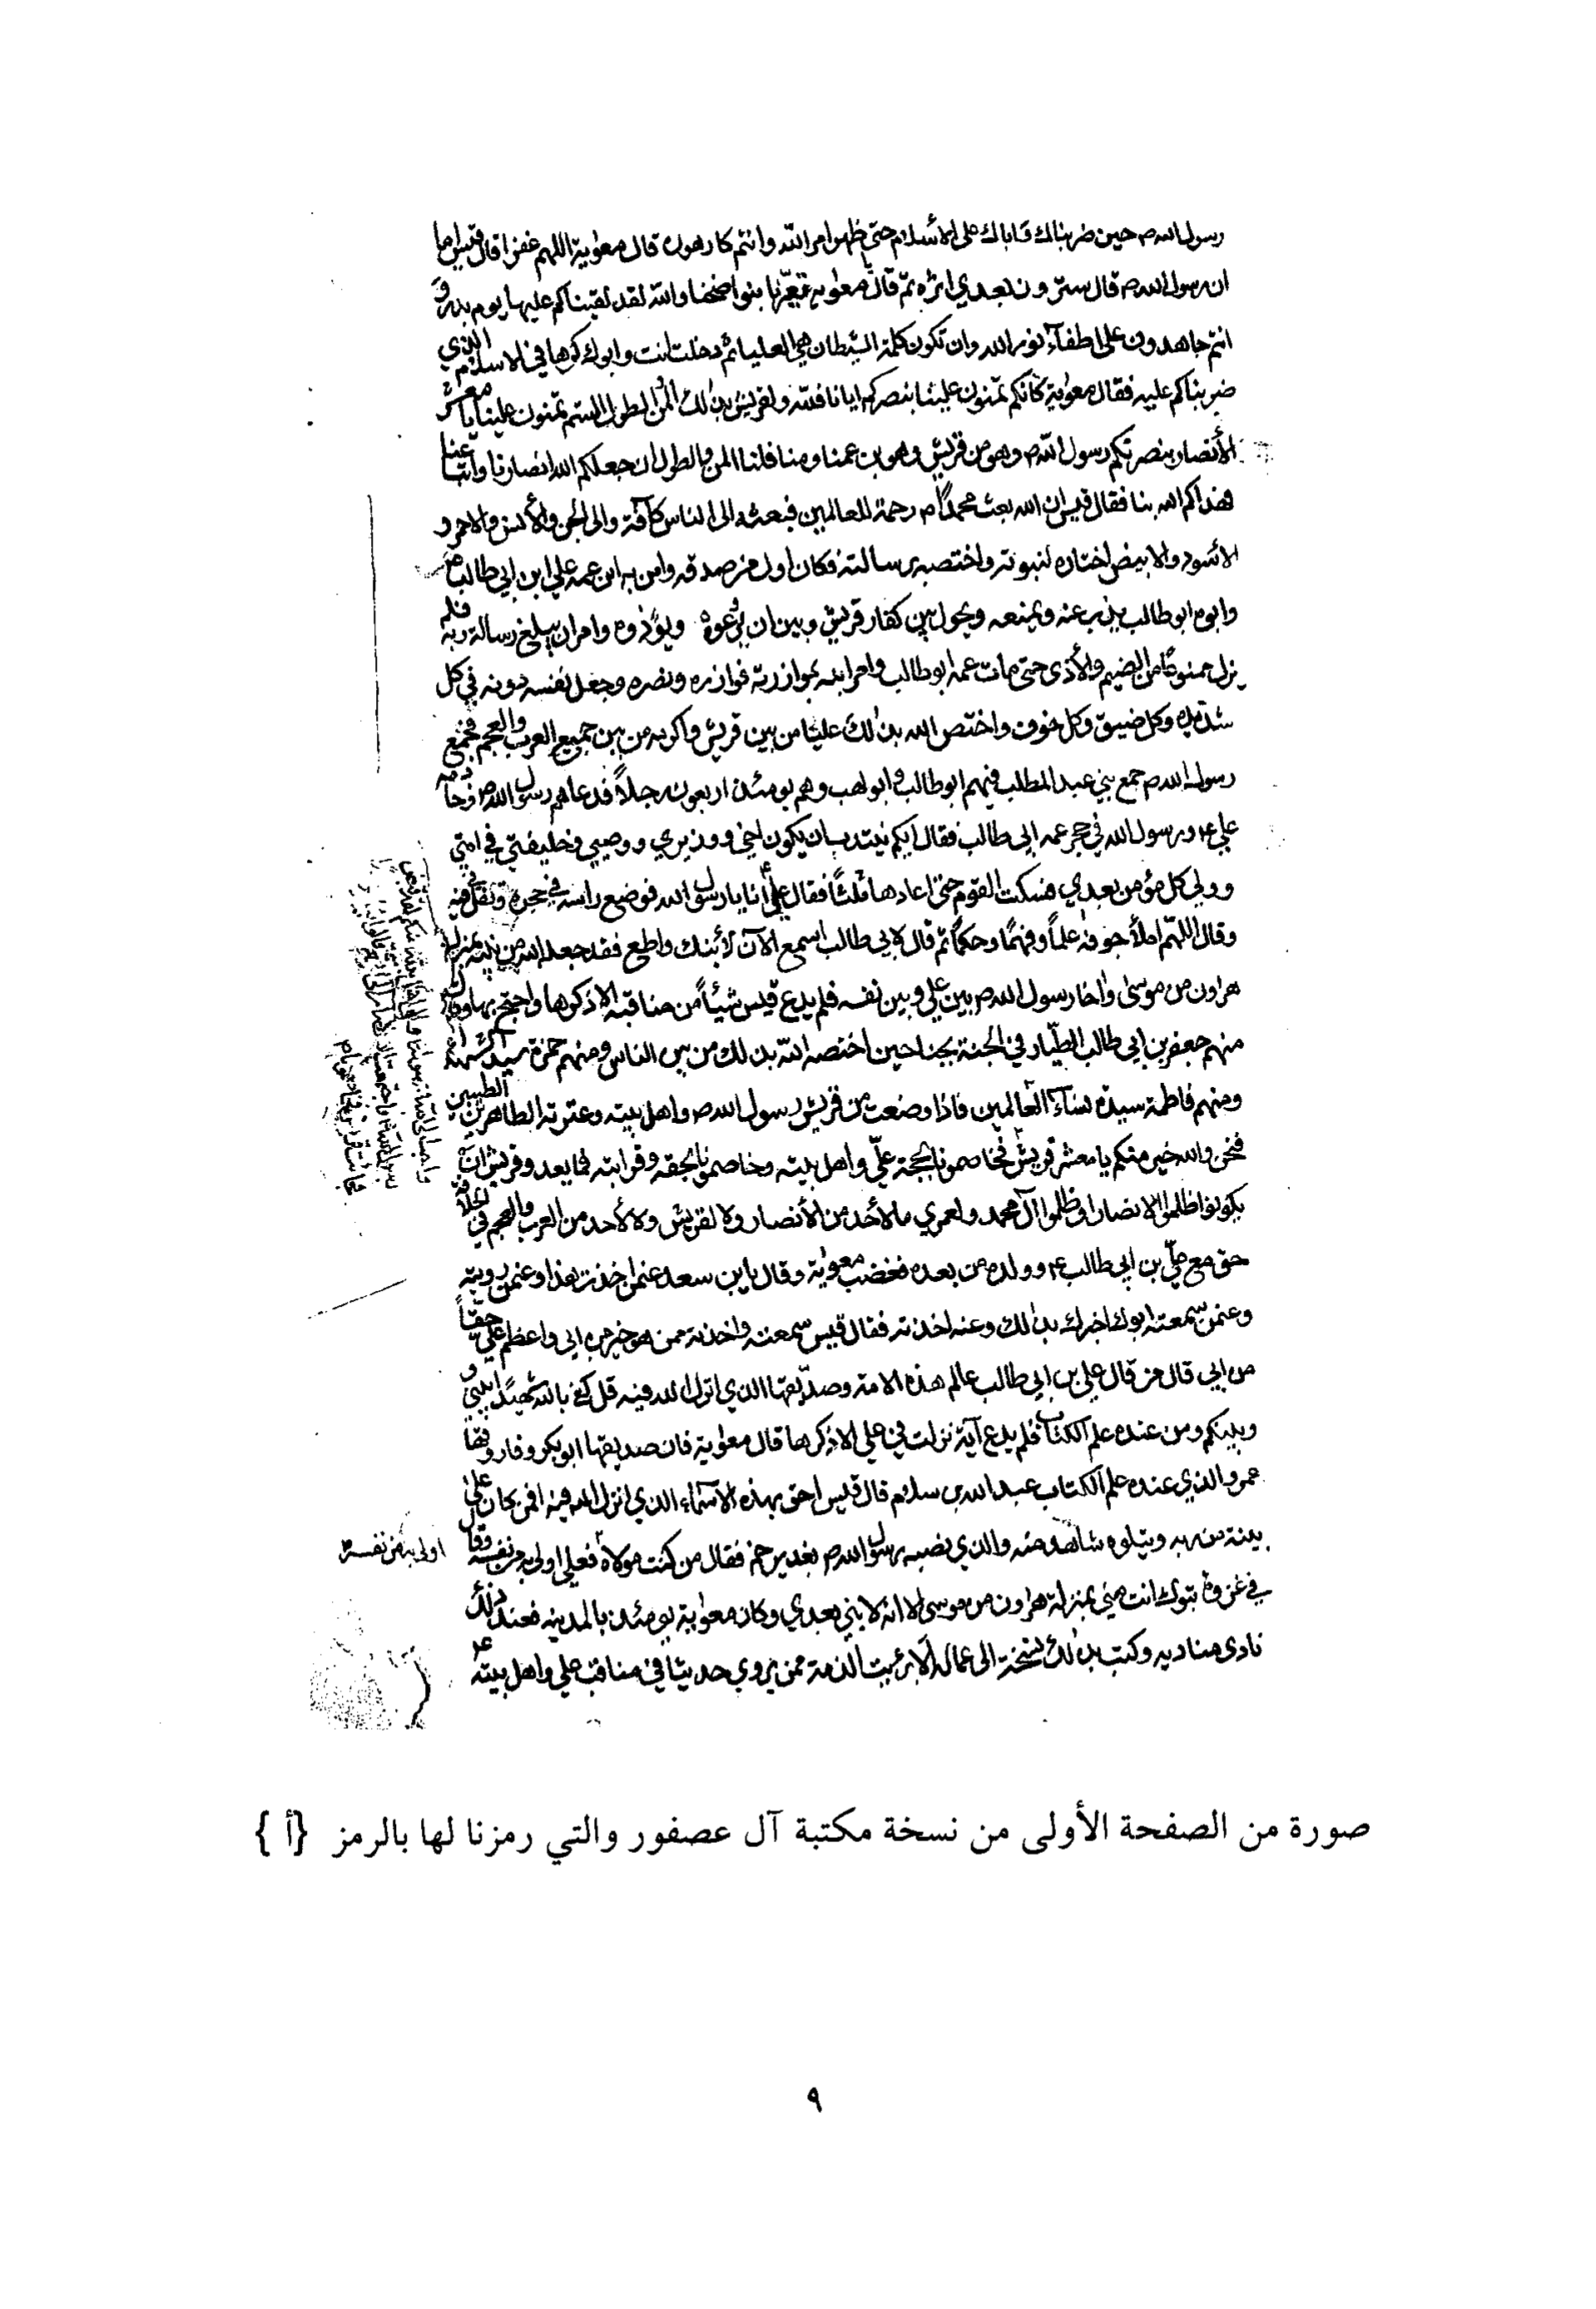 رسول الله ص حين ضربناك واباك على الأسلام حتى ظهر امر الله وانتم كارهون قال معوية اللهم غفرا قال قيس اما
ان رسول الله ص قال سترون بعدي اثره ثم قال معوية تعيرنا بنواضحنا والله لقد لقيناكم عليها يوم بدر و
انتم جاهدون على اطفاء نور الله وان تكون كلمة الشيطان هي العليا ثم دخلت انت وابوك كرها في الاسلام الذي
ضربناكم عليه فقال معوية كانكم تمنون علينا بنصركم ايانا فلله ولقريش بذلك المن والطول الستم تمنون علينا يا معشر
الأنصار بنصرتكم رسول الله ص وهو من قريش وهو بن عمنا ومنا فلنا المن والطول ان جعلكم الله انصارنا واتباعنا
فهداكم الله بنا فقال قيس ان الله بعث محمدا ص رحمة للعالمين فبعثه الى الناس كافة والى الجن والأنس والاحمر و
الأسود والابيض اختاره لنبوته واختصه برسالته فكان اول من صدقه وامن به ابن عمه علي ابن ابي طالب
وابوه ابو طالب يذب عنه ويمنعه ويحول بين كفار قريش وبين ان يردعوه ويؤذوه وامر ان يبلغ رسالة ربه فلم
يزل ممنوعا من الضيم والأذى حتى مات عمه ابو طالب وامر ابنه بموازرته فوازره ونصره وجعل نفسه دونه في كل
شديده وكل ضيق وكل خوف واختص الله بذلك عليا من بين قريش واكرمه من بين جميع العرب والعجم فجمع
رسول الله ص جمع بني عبد المطلب فيهم ابو طالب وابو لهب وهم يومئذ اربعون رجلاً فدعاهم رسول الله ص وخادمه
علي ع ورسول الله في حجر عمه ابي طالب فقال ايكم ينتدب ان يكون اخي ووزيري ووصيي وخليفتي في امتي
وولي كل مؤمن بعدي فسكت القوم حتى اعادها ثلثاً فقال علي أنا يا رسول الله فوضع راسه في حجره وتفل في فيه
وقال اللهم املأ جوفه علماً وفهمًا وحكماً ثم قال لابي طالب اسمع الآن لأبنك واطع فقد جعله الله من نبيه بمنزلة
هارون من موسى وأخا رسول الله ص بين علي وبين نفسه فلم يدع قيس شيئاً من مناقبه الا ذكرها واحتج بها وقال
منهم جعفر بن ابي طالب الطيار في الجنة بجناحين اختصه الله بذلك من بين الناس ومنهم حمزة سيد الشهداء
ومنهم فاطمة سيدة نساء العالمين فاذا وضعت من قريش رسول الله ص واهل بيته وعترته الطاهرين الطيبين
فنحن والله خير منكم يا معشر قريش
يكونوا ظلموا الانصار او ظلموا آل محمد ولعمري ما لأحد من الأنصار ولا لقريش ولا لأحد من العرب والعجم في الخلافة
حق مع علي بن ابي طالب ع وولده من بعده فغضب معوية وقال يا بن سعد عمن اخذت هذا وعمن رويته
وعمن سمعته ابوك اخبرك بذلك وعنه اخذته فقال قيس سمعته واخذته ممن هو خير من ابي واعظم علي حقاً
من ابي قال من قال علي بن ابي طالب عالم هذه الامة وصديقها الذي انزل الله فيه قل كفى بالله شهيدًا بيني و
وبينكم ومن عنده علم الكتاب فلم يدع آية نزلت في علي الا ذكرها قال معوية فان صديقها ابو بكر وفاروقها
عمر والذي عنده علم الكتاب عبد الله بن سلام قال قيس احق بهذه الأسماء الذي انزل الله فيه افمن كان على
بينة من ربه ويتلوه شاهد منه والذي نصبه رسول الله ص بغدير خم فقال من كنت مولاه فعلي اولى به من نفسه وقال
اولى به من نفسه
في غزوة تبوك انت مني بمنزلة هارون من موسى الا انه لا نبي بعدي وكان معوية يومئذ بالمدينه فعند ذلك
نادى مناديه وكتب بذلك نسخة الى عماله ألا برئت الذمة ممن يروي حديثا في مناقب علي واهل بيته ع
صورة من الصفحة الأولى من نسخة مكتبة آل عصفور والتي رمزنا لها بالرمز {أ}
٩